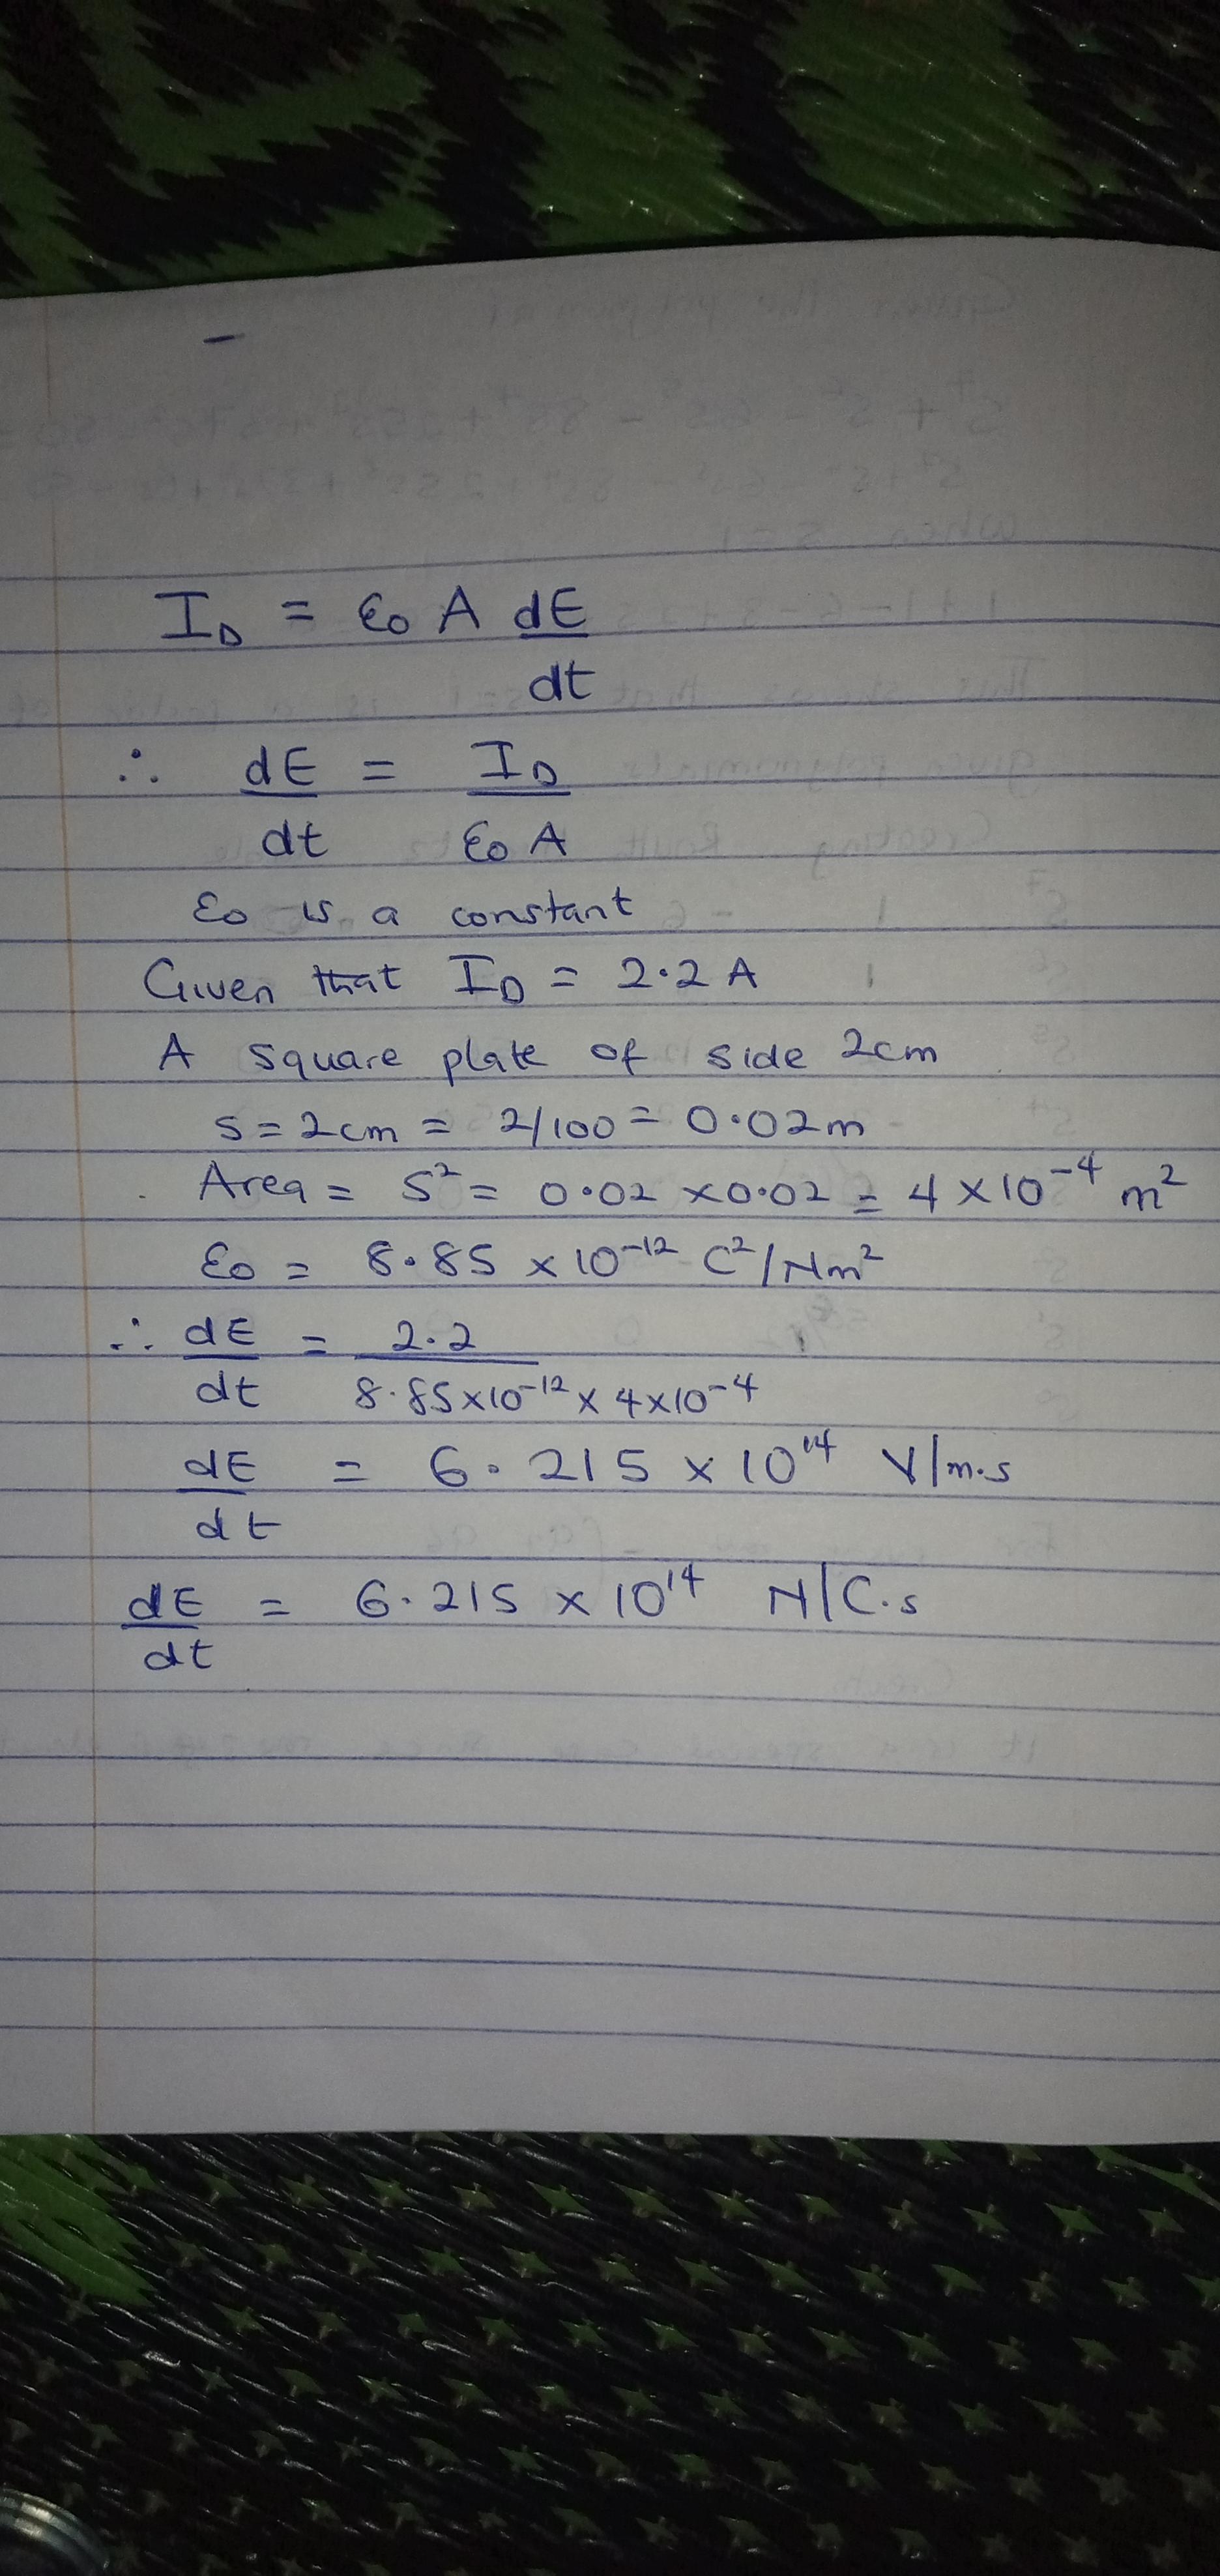 I_D = ε₀ A dE
dt
∴ dE = I_D
dt ε₀ A
ε₀ is a constant
Given that I_D = 2.2 A
A square plate of side 2cm
s = 2cm = 2/100 = 0.02m
Area = s² = 0.02 × 0.02 = 4 × 10⁻⁴ m²
ε₀ = 8.85 × 10⁻¹² C²/Nm²
∴ dE = 2.2
dt 8.85×10⁻¹² × 4×10⁻⁴
dE = 6.215 × 10¹⁴ V/m.s
dt
dE = 6.215 × 10¹⁴ N/C.s
dt